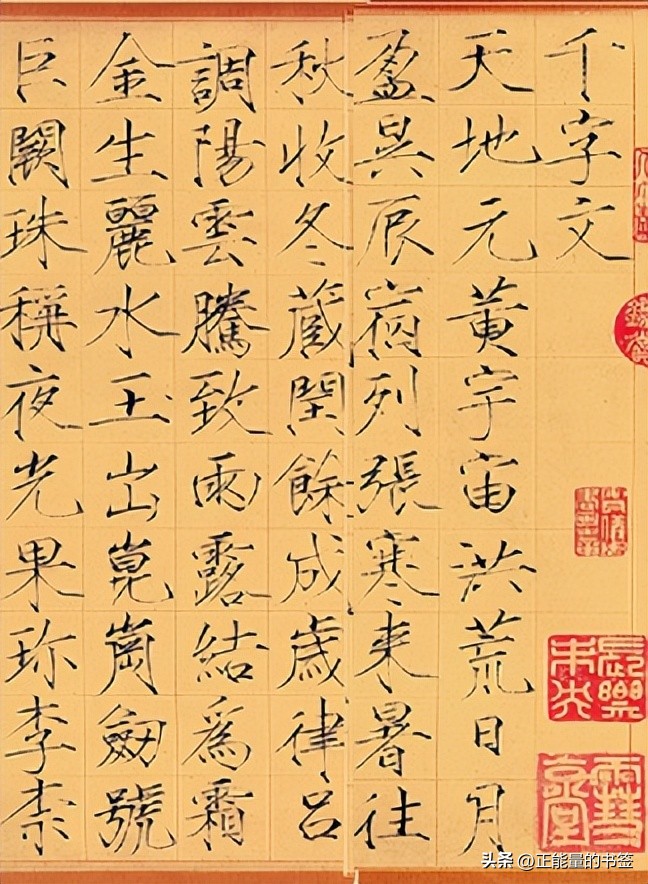 千字文
天地元黃宇宙洪荒日月
盈昃辰宿列張寒来暑往
秋收冬藏閏餘成歲律呂
調陽雲騰致雨露結爲霜
金生麗水玉出崑崗劔號
巨闕珠稱夜光果珍李柰
長樂未央
头条 @正能量的书签